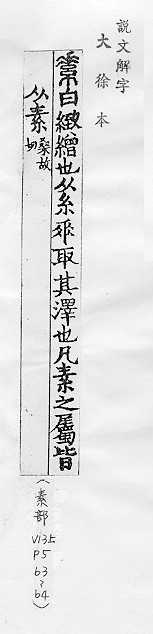 說文解字
大徐本
𦃃白緻繒也从糸𠂹取其澤也凡素之屬皆
从素
桑故
切
(素部
V135
P5
63
?
64)